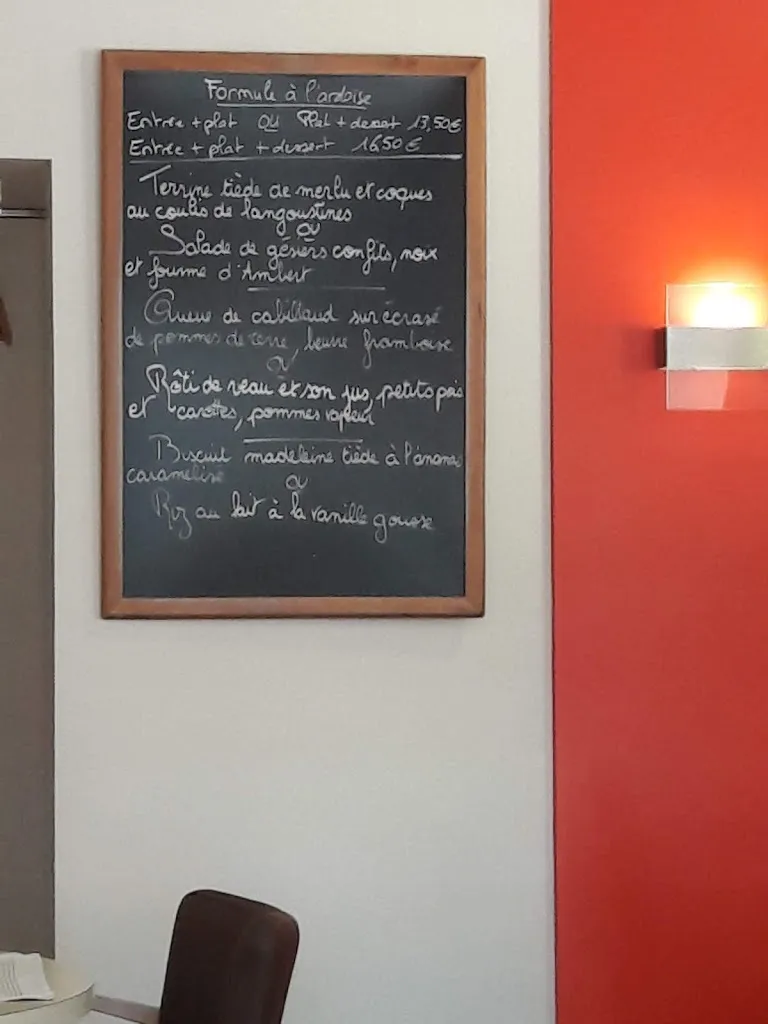 Formule à l'ardoise
Entrée + plat OU Plat + dessert 13,50€
Entrée + plat + dessert 16,50€
Terrine tiède de merlu et coques
au coulis de langoustines
OU
Salade de gésiers confits, noix
et fourme d'Ambert
Queue de cabillaud sur écrasé
de pommes de terre, beurre framboise
OU
Rôti de veau et son jus, petits pois
et carottes, pommes vapeur
Biscuit madeleine tiède à l'ananas
caramélisé
OU
Riz au lait à la vanille gousse